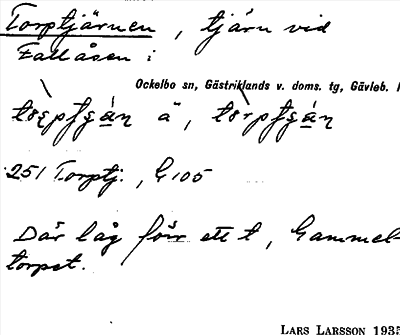 Torptjärnen, tjärn vid
Fallåsen i
Ockelbo sn, Gästriklands v. doms. tg, Gävleb. l
ä,
251 Torptj., G 105
Där låg förr ett t, Gammel-
torpet.
LARS LARSSON 1935